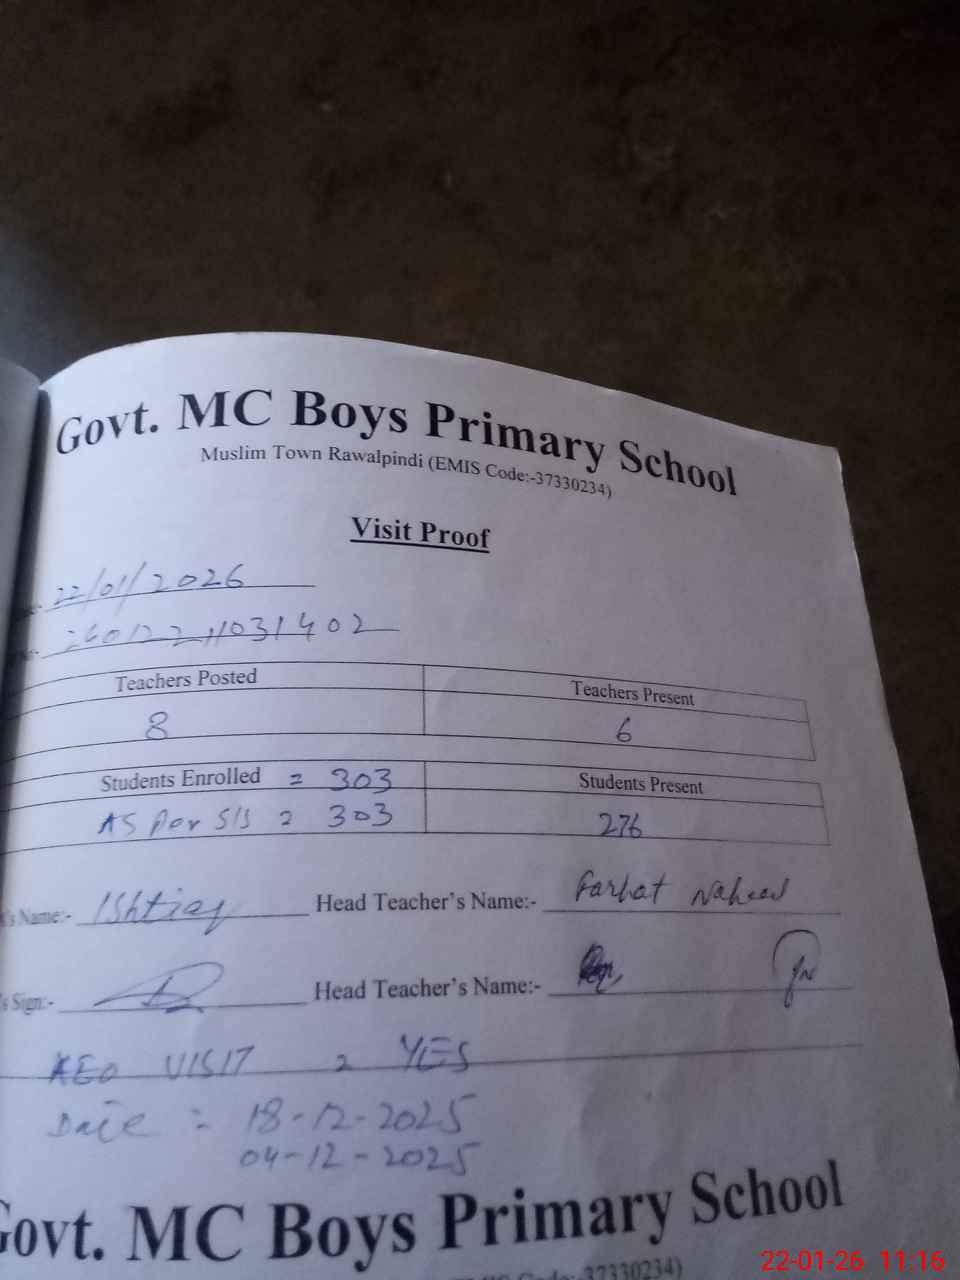 Govt. MC Boys Primary School
Muslim Town Rawalpindi (EMIS Code:-37330234)
Visit Proof
22/01/2026
Teachers Posted Teachers Present
8 6
Students Enrolled = 303 Students Present
AS Per SIS = 303 276
's Name:- Ishtiaq Head Teacher's Name:- Farhat Naheed
's Sign:- Head Teacher's Name:-
AEO VISIT = YES
Date : 18-12-2025
04-12-2025
Govt. MC Boys Primary School
Code:-37330234)
22-01-26 11:16